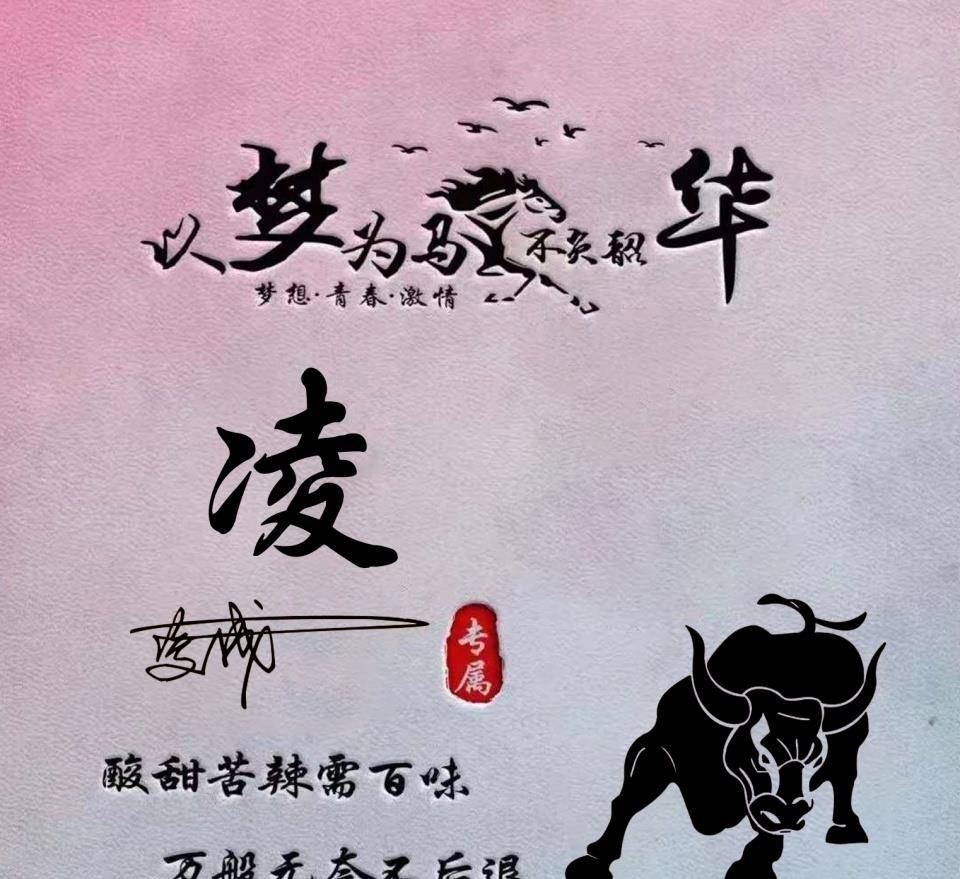 以梦为马不负韶华
梦想·青春·激情
凌
专属
酸甜苦辣需百味
万般无奈不后退